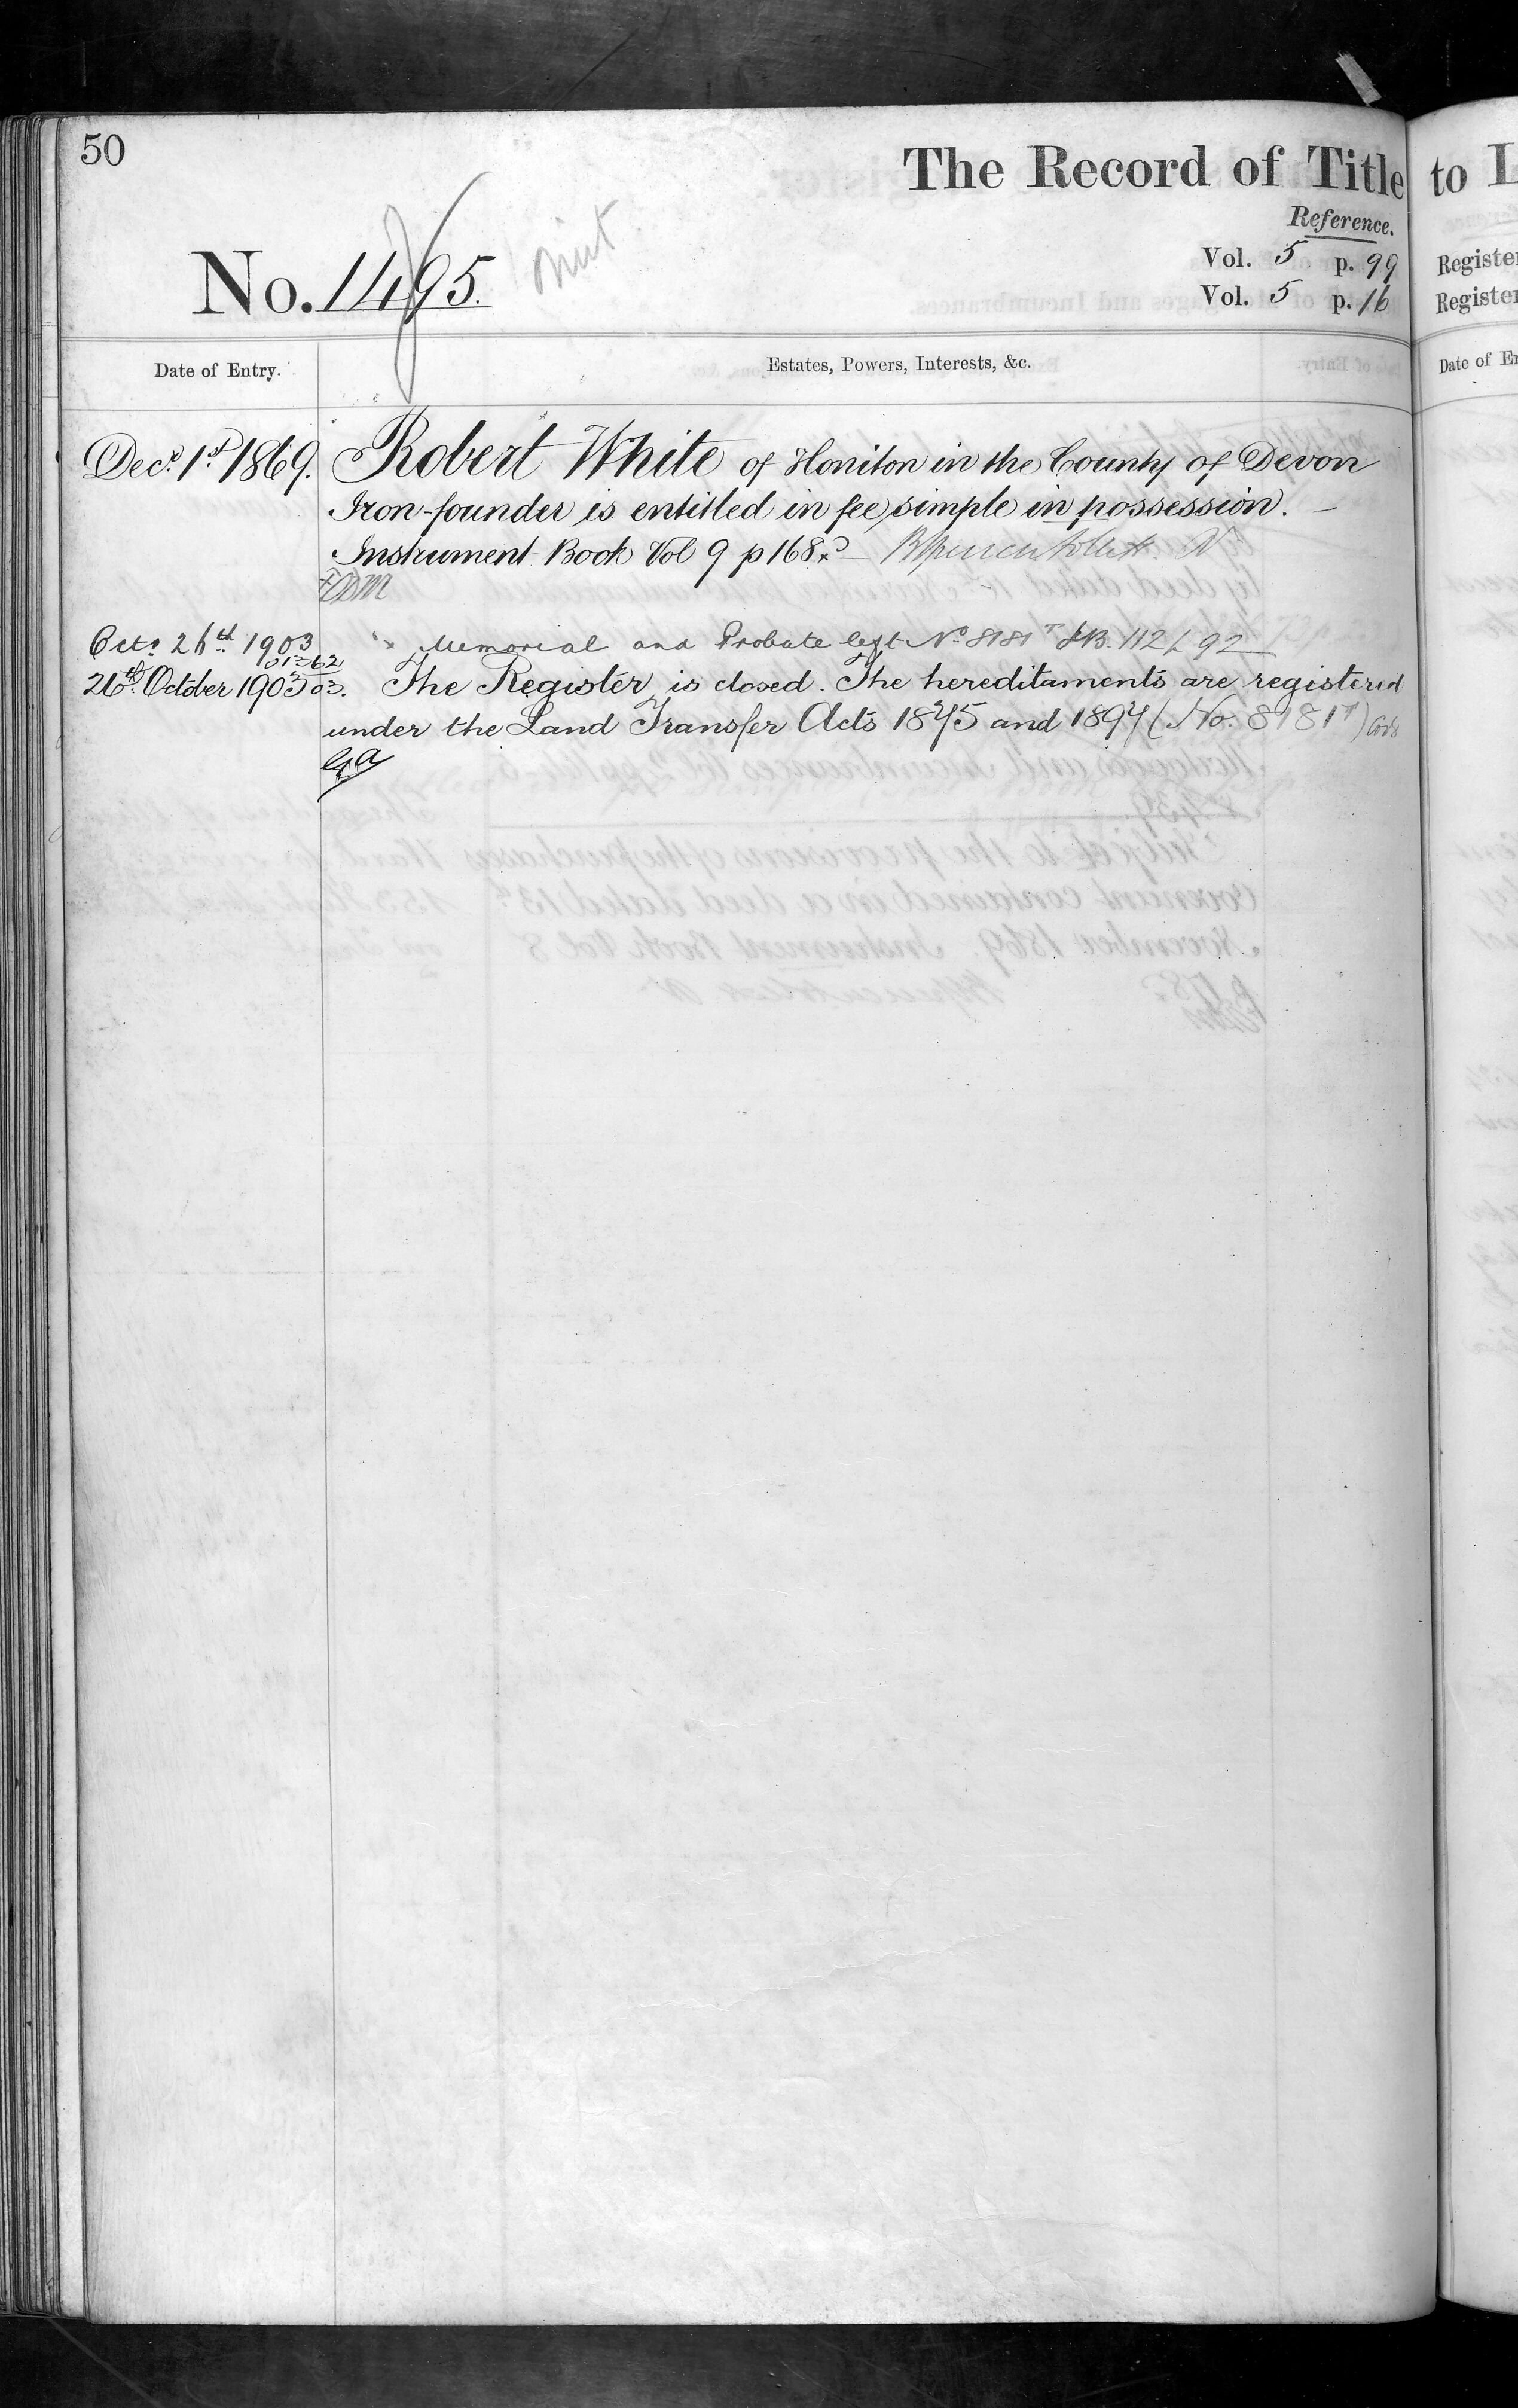 50
The Record of Title to
Reference.
No. 1495.
Vol. 5 p. 99 Register
Vol. 5 p. 16 Register
Date of Entry. Estates, Powers, Interests, &c. Date of
Decr. 1st 1869. Robert White of Honiton in the County of Devon
Iron-founder is entitled in fee simple in possession.
Instrument Book Vol 9 p 168.
Octr. 26th 1903 Memorial and Probate left No 8181 T 112 92
26th October 1903 The Register is closed. The hereditaments are registered
under the Land Transfer Acts 1875 and 1897 (No. 8181 T)